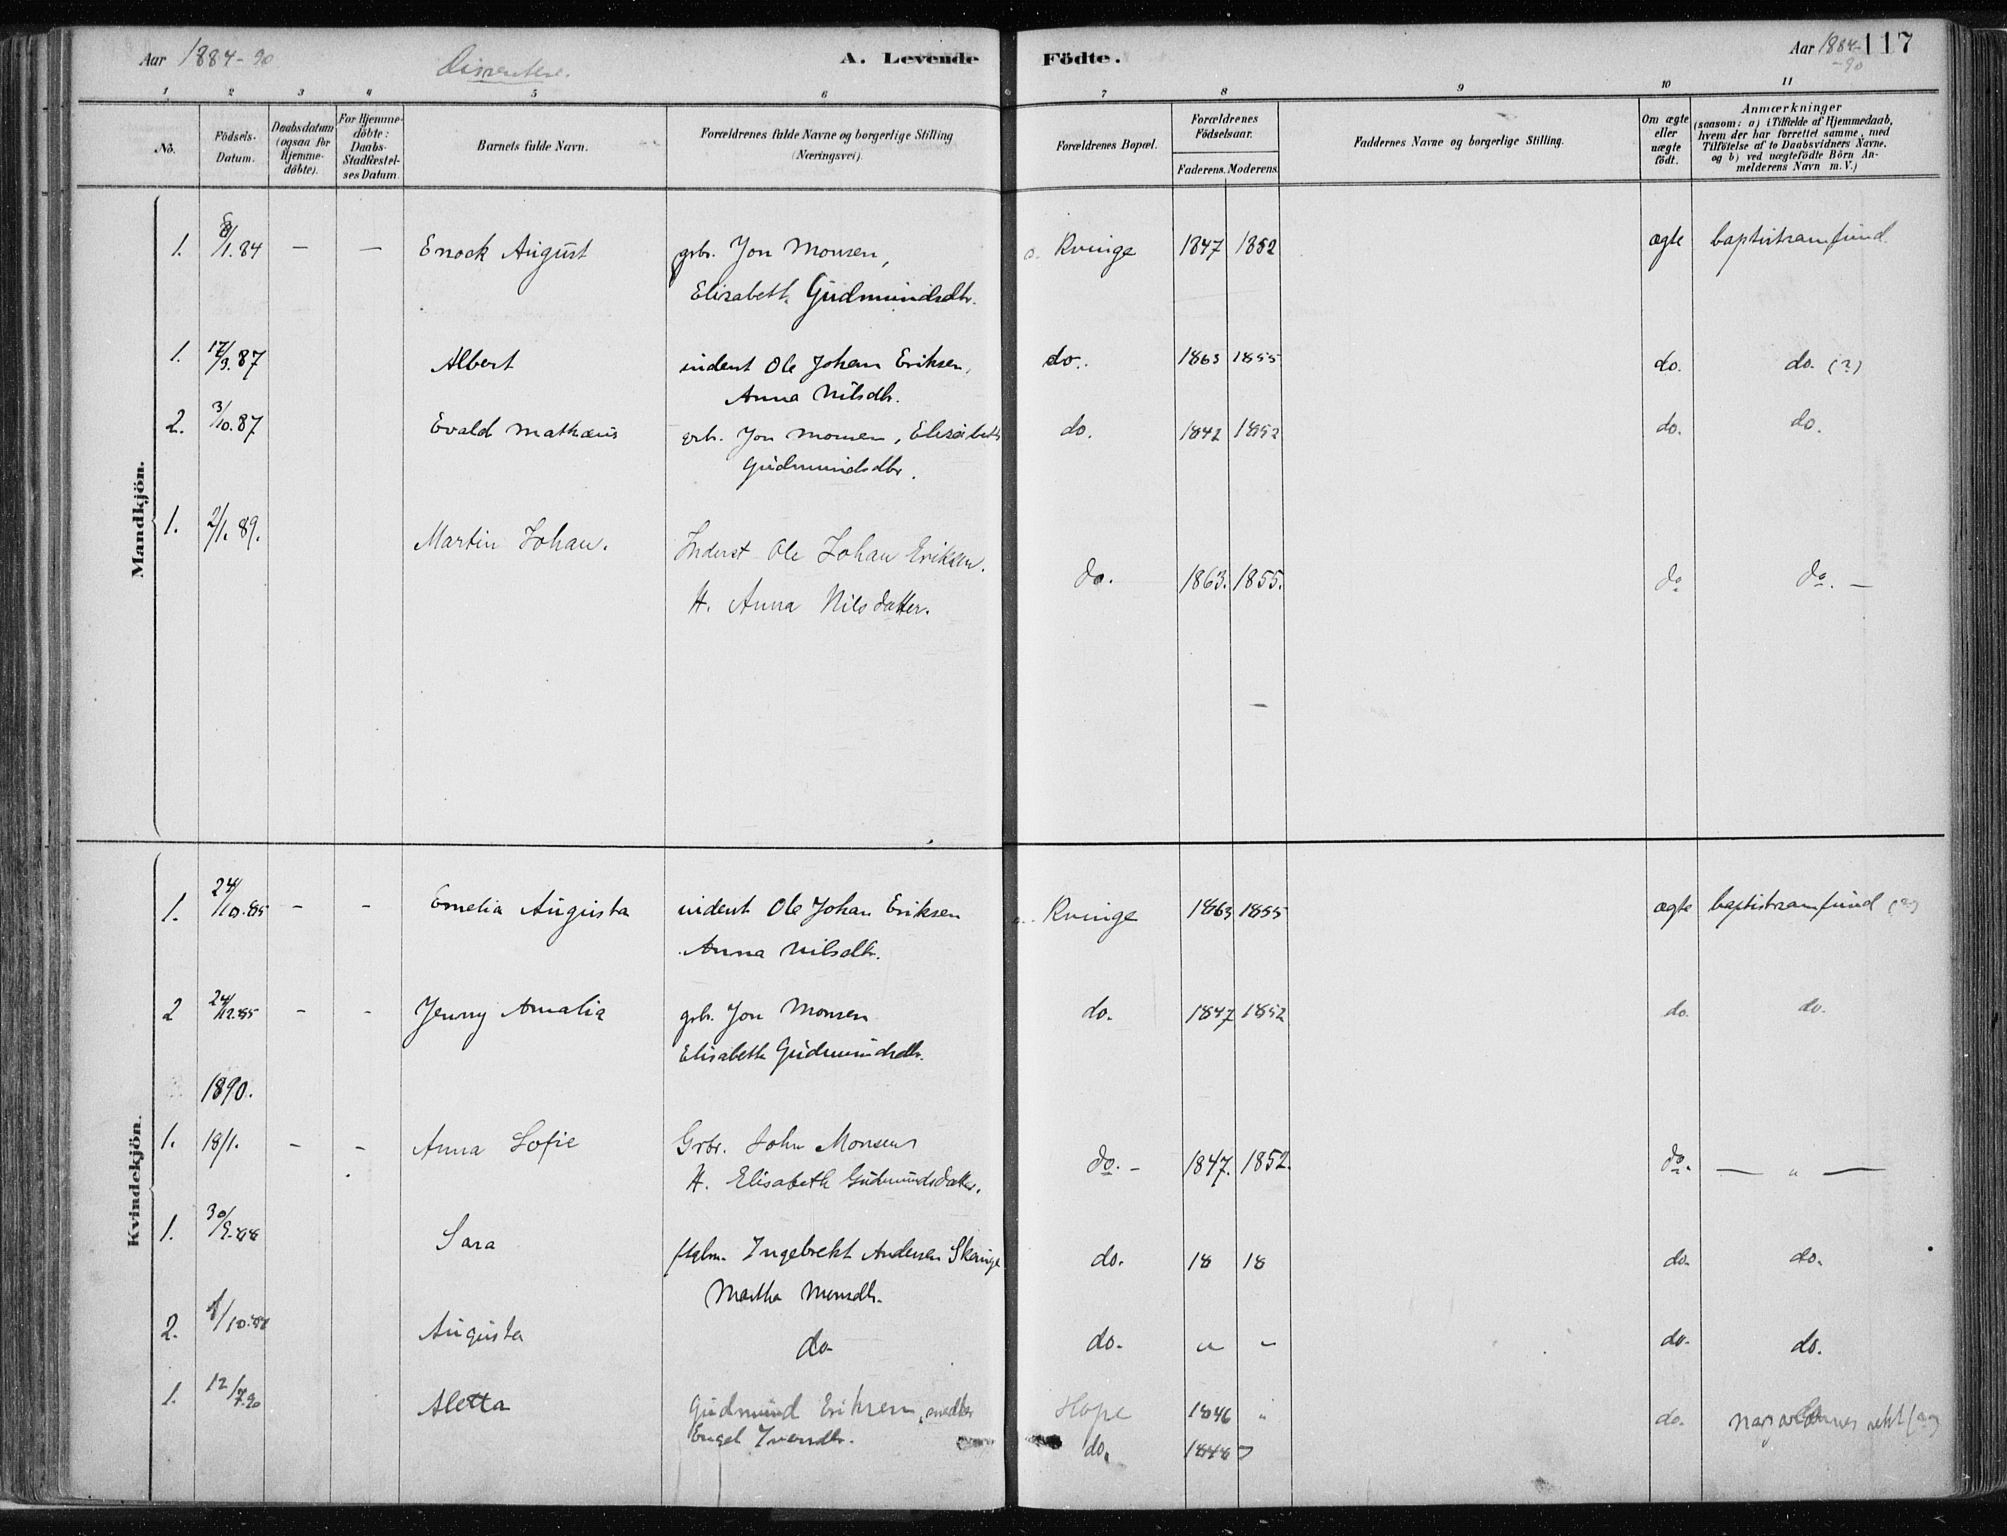 Aar 1884-90
Dissentere.
A. Levende
Födte.
Aar 1884-90
117
1 2 3 4 5 6 7 8 9 10 11
No.
Födsels-Datum.
Daabsdatum (ogsaa for Hjemme-döbte).
For Hjemme-döbte: Daabs-Stadfæstel-ses Datum.
Barnets fulde Navn.
Forældrenes fulde Navne og borgerlige Stilling (Næringsvei).
Forældrenes Bopæl.
Forældrenes Födselsaar.
Faderens. Moderens.
Faddernes Navne og borgerlige Stilling.
Om ægte eller uægte födt.
Anmærkninger (saasom: a) i Tilfælde af Hjemmedaab, hvem der har forrettet samme, med Tilföielse af to Daabsvidners Navne. og b) ved uægtefödte Börn An-melderens Navn m. V.)
Mandkjön.
1. 8/1.84 — — Enock August grbr. Jon Monsen, Kvinge 1847 1852 ægte baptistsamfund.
Elisabeth Gudmundsdtr.
1. 17/3.87 Albert inderst Ole Johan Eriksen, do. 1863 1855 do. do. (?)
Anna Nilsdtr.
2. 3/10.87 Evald Mathæus grbr. Jon Monsen, Elisabeth do. 1842 1852 do. do.
Gudmundsdtr.
1. 2/1.89. Martin Johan. Inderst Ole Johan Eriksen.
H. Anna Nilsdatter. do. 1863. 1855. do do. —
Kvindekjön.
1. 24/10.85 - - Emelia Augusta inderst Ole Johan Eriksen Kvinge 1863 1855 ægte baptistsamfund (?)
Anna Nilsdtr.
2 24/12.85 - - Jenny Amalia grbr. Jon Monsen do. 1847 1852 do. do.
Elisabeth Gudmundsdtr.
1890.
1. 18/1. - - Anna Sofie Grbr. John Monsen
H. Elisabeth Gudmundsdatter. do. - 1847. 1852. do. — " —
1. 30/9.88 Sara Ingebrekt Andersen
Martha Monsdtr. do. 18 18 do. do.
2. 1/10.88 Augusta do. do. " " do. do.
1. 12/7.90 Aletta Gudmund Eriksen, Hope 1846 " do.
Engel Iversdtr. do. 1848